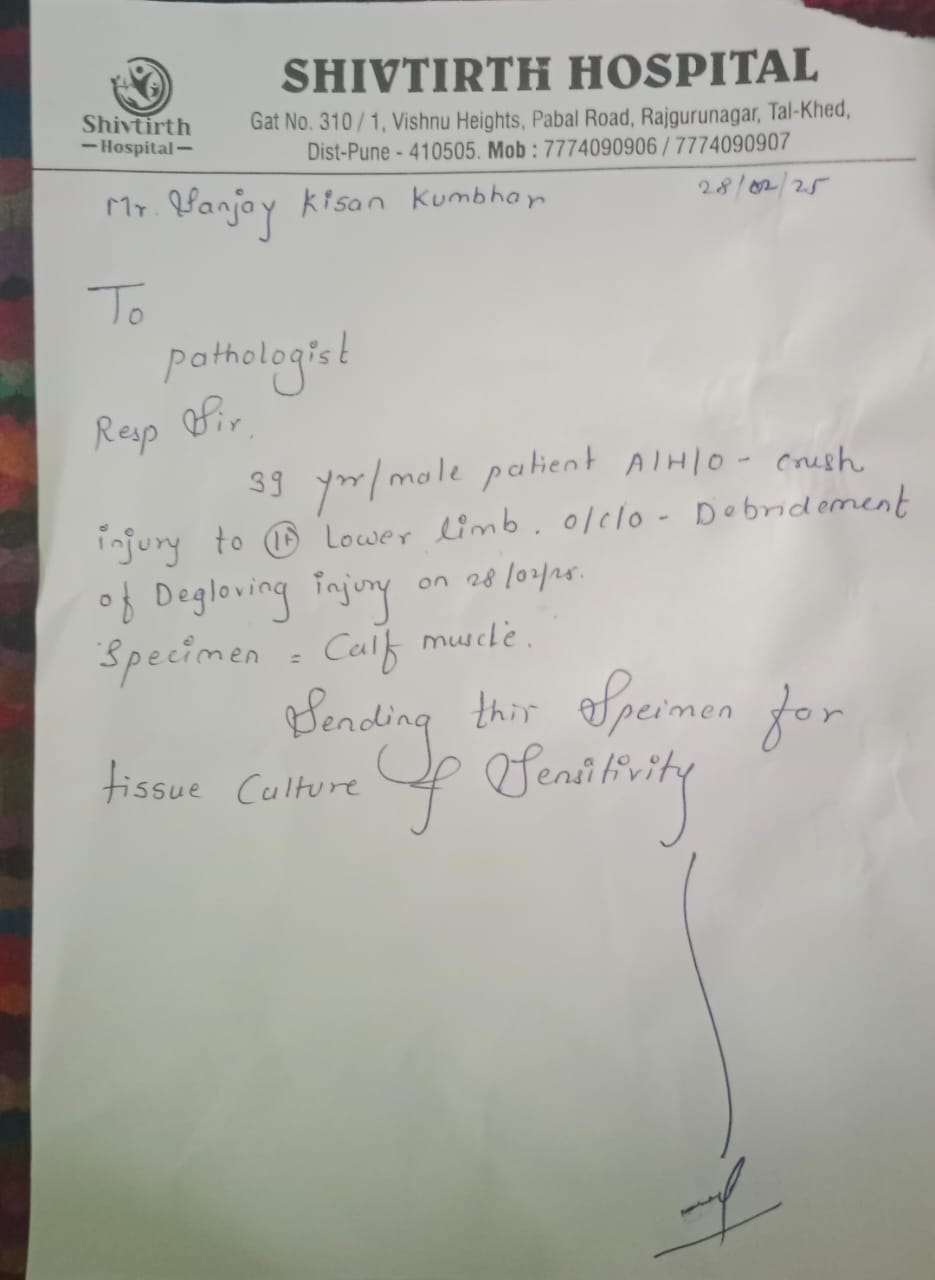 SHIVTIRTH HOSPITAL
Shivtirth
Hospital
Gat No. 310 / 1, Vishnu Heights, Pabal Road, Rajgurunagar, Tal-Khed,
Dist-Pune - 410505. Mob : 7774090906 / 7774090907
28/02/25
Mr. Sanjay Kisan Kumbhar
To
pathologist
Resp Sir.
39 yrr/male patient A/H/O - crush
injury to Lower limb. O/C/O - Debridement
of Degloving injury on 28/02/25.
Specimen = Calf muscle.
Sending this Speimen for
tissue Culture & Sensitivity